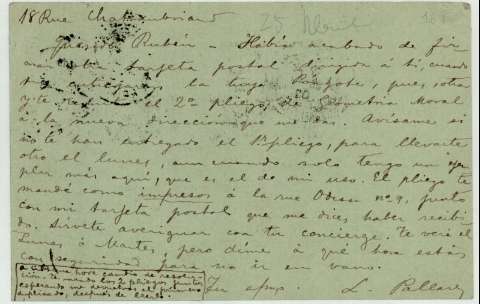 18 Rue Chateaubriand
25 Abril
Querido Rubén – Había acabado de fir
mar otra tarjeta postal dirigida á tí, cuando
la tuya
y te el 2º pliego de Geometria Moral
á la nueva dirección que me das. Avísame si
no te han entregado el 1er pliego, para llevarte
otro el lunes, aun cuando solo tengo un ejem
plar más aquí, que es el de mi uso. El pliego te
mandé como impresos á la rue Odessa nº 9, junto
con mi tarjeta postal que me dices haber recibi
do. Sírvete averiguar con tu concierge. Te veré el
Lunes ó Martes, pero dime á qué hora estás
con seguridad para no ir en vano.
Tu afmo. L. Pallares
á última hora cambio de resolu
ción. Te mando los 2 pliegos juntos
esperando me devuelvas el primero
duplicado, después de